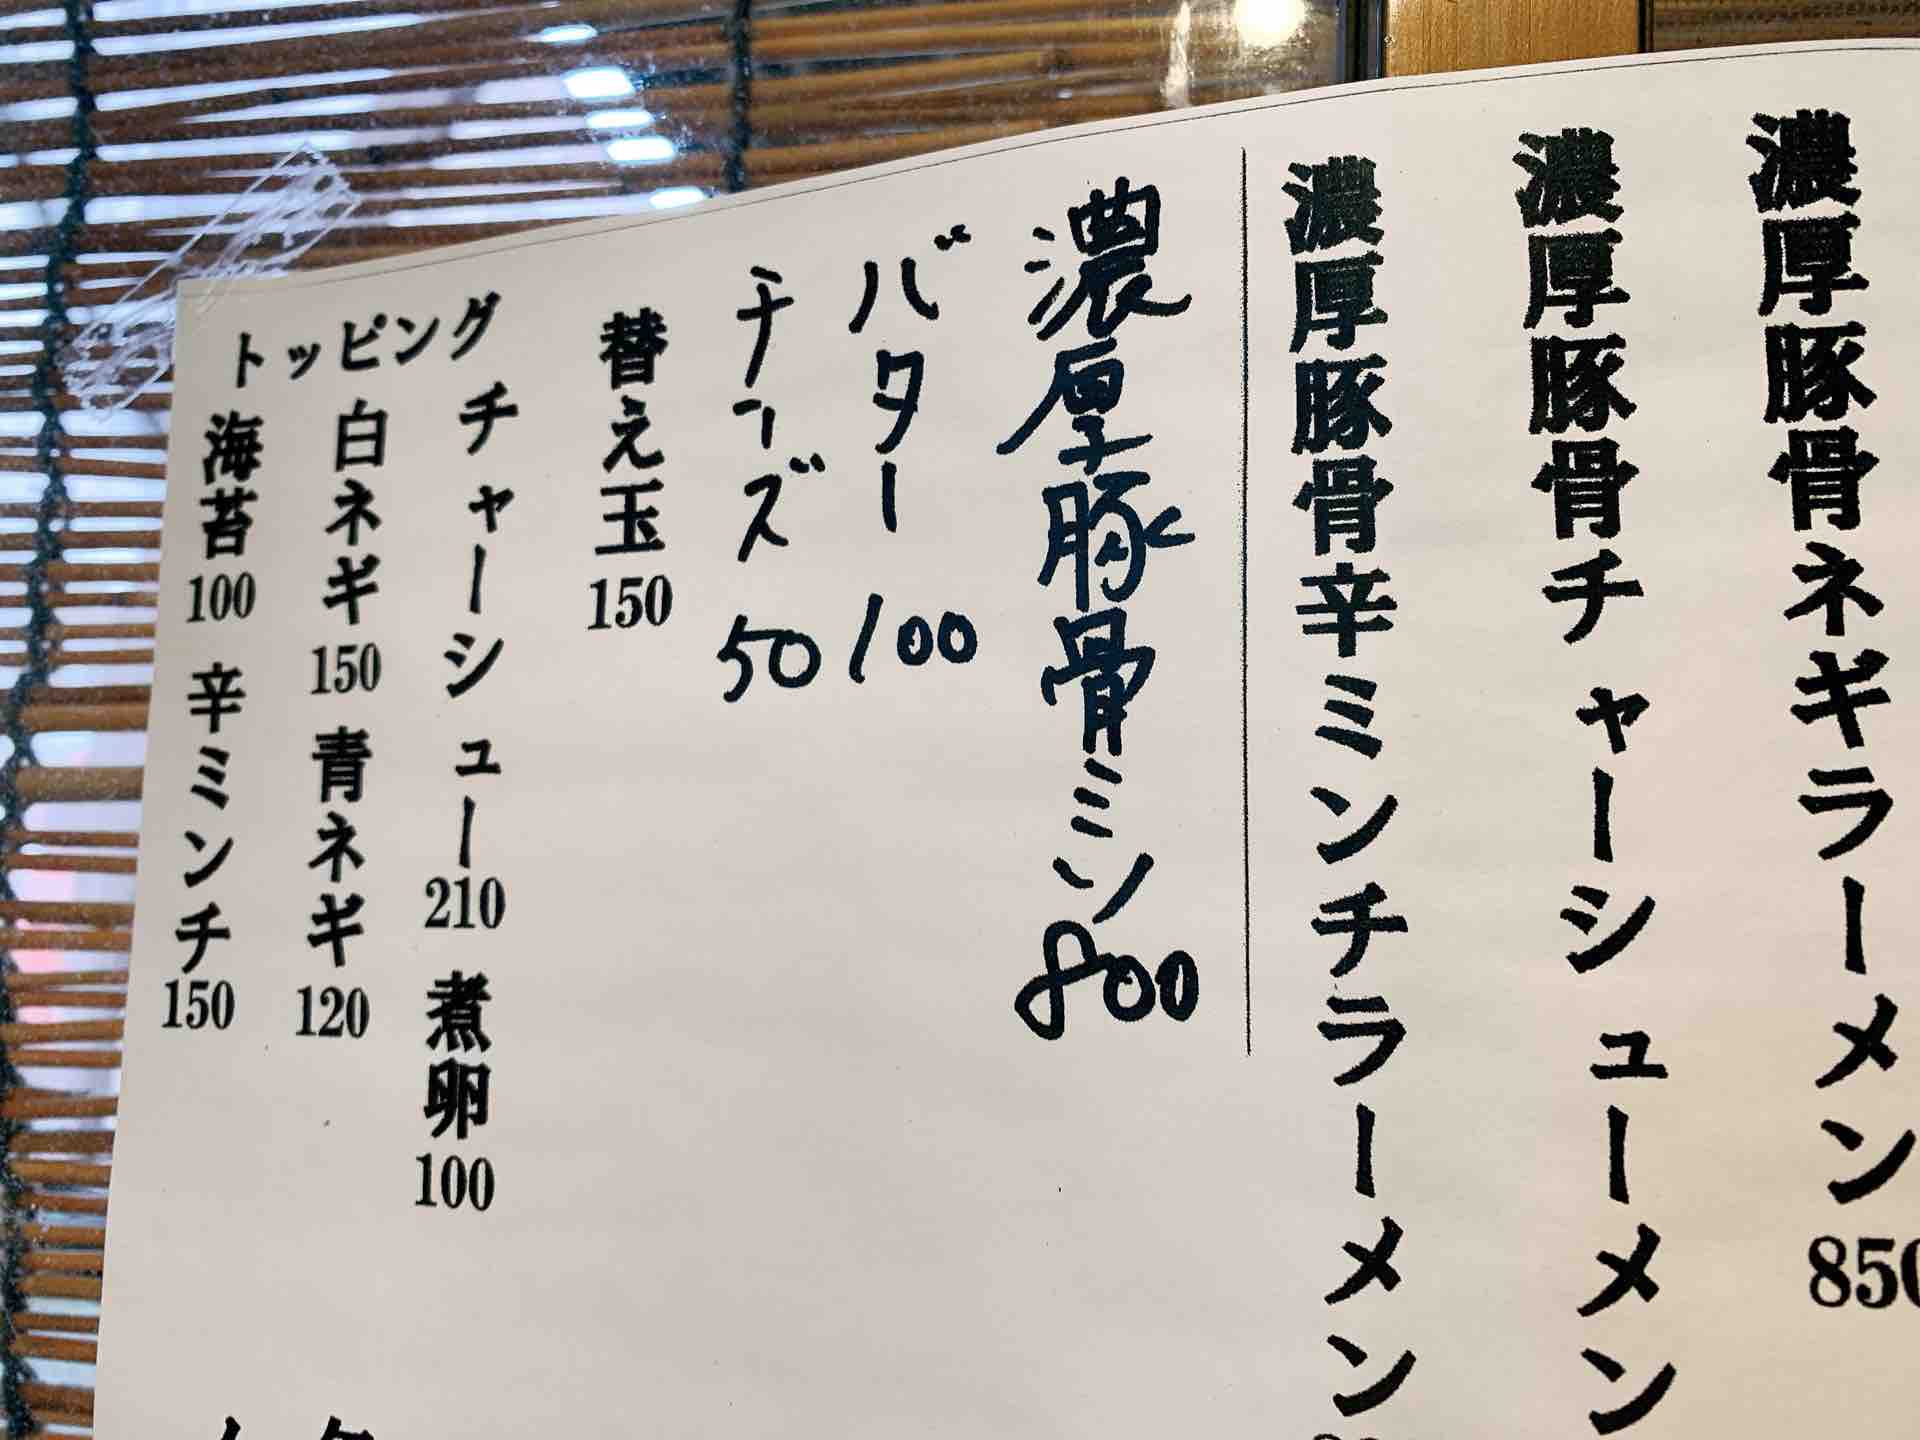 濃厚豚骨ネギラーメン850
濃厚豚骨チャーシューメン
濃厚豚骨辛ミンチラーメン
濃厚豚骨ミンソ800
バター 100
チーズ 50
替え玉150
トッピング
チャーシュー210 煮卵100
白ネギ150 青ネギ120
海苔100 辛ミンチ150